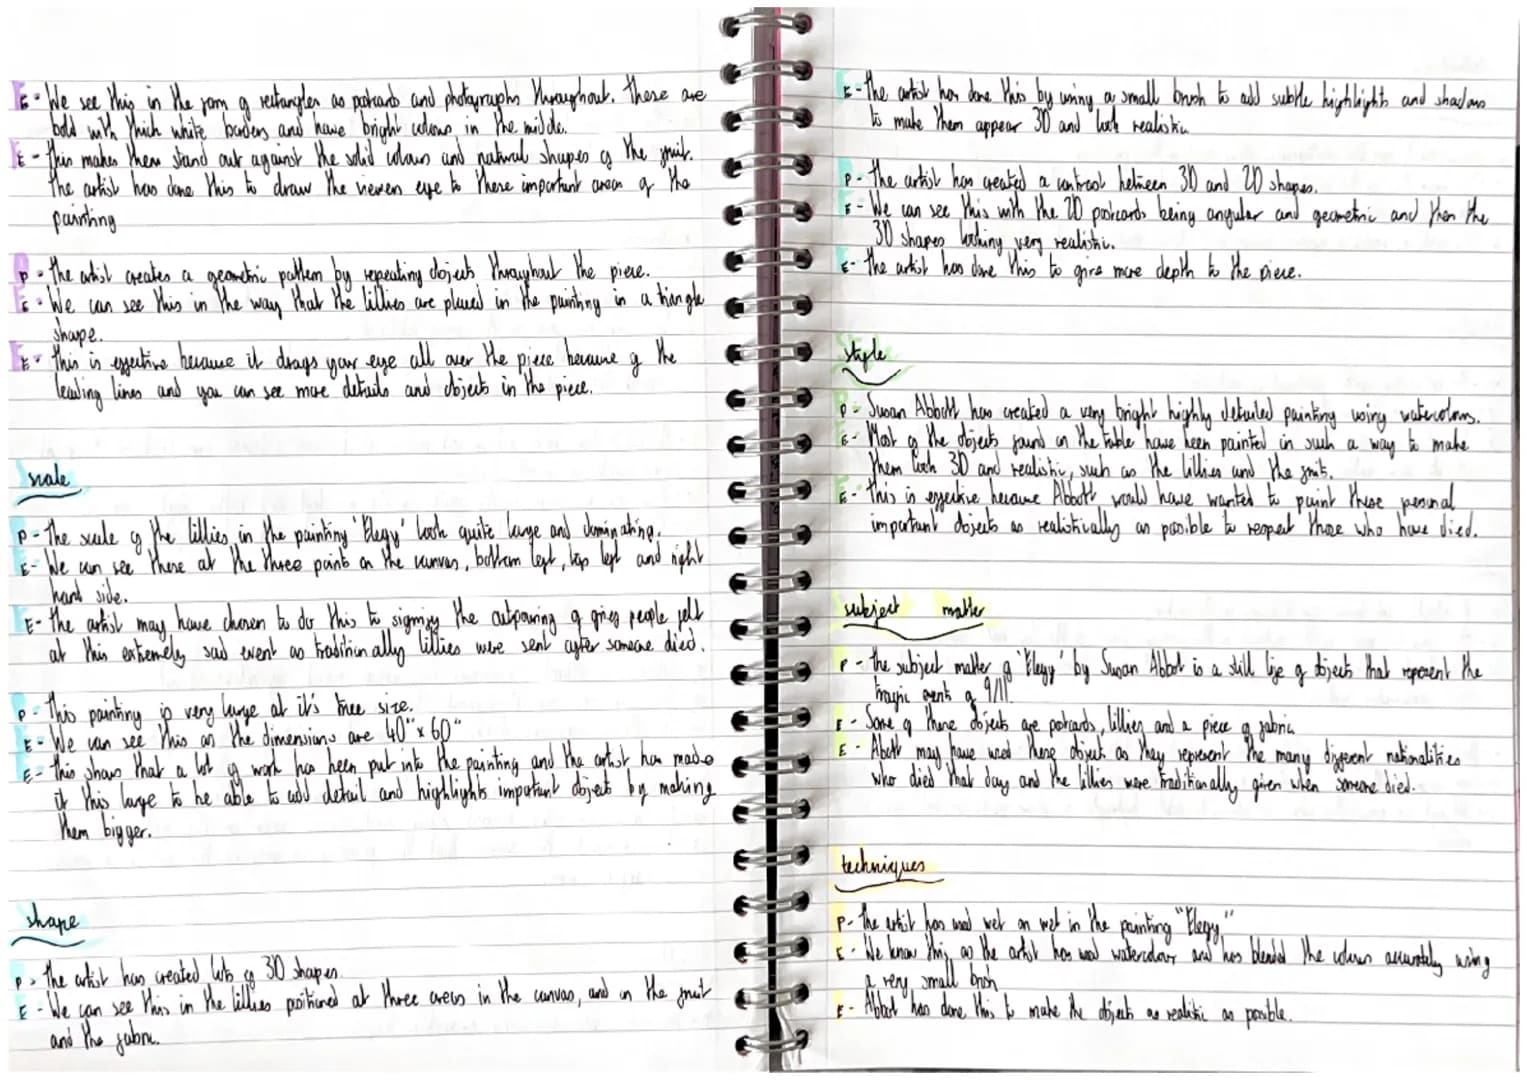 E - We see this in the form of rectangles as postcards and photographs throughout. These are
bold with thick white borders and have bright colours in the middle.
E - This makes them stand out against the solid colours and natural shapes of the fruit.
The artist has done this to draw the viewers eye to these important areas of the
painting
P - The artist creates a geometric pattern by repeating objects throughout the piece.
E - We can see this in the way that the lillies are placed in the painting in a triangle
shape.
E - This is effective because it drags your eye all over the piece because of the
leading lines and you can see more details and objects in the piece.
scale
P - The scale of the lillies in the painting 'Elegy' look quite large and dominating.
E - We can see these at the three points on the canvas, bottom left, top left and right
hand side.
E - The artist may have chosen to do this to signify the outpouring of grief people felt
at this extremely sad event as traditionally lillies were sent after someone died.
P - This painting is very large at it's true size.
E - We can see this as the dimensions are 40" x 60"
E - This shows that a lot of work has been put into the painting and the artist has made
it this large to be able to add detail and highlights important objects by making
them bigger.
shape
P - The artist has created lots of 3D shapes.
E - We can see this in the lillies positioned at three areas in the canvas, and in the fruit
and the fabric.
E - The artist has done this by using a small brush to add subtle highlights and shadows
to make them appear 3D and look realistic
P - The artist has created a contrast between 3D and 2D shapes.
E - We can see this with the 2D postcards being angular and geometric and then the
3D shapes looking very realistic.
E - The artist has done this to give more depth to the piece.
style
P - Susan Abbott has created a very bright highly detailed painting using watercolours.
E - Most of the objects found on the table have been painted in such a way to make
them look 3D and realistic, such as the lillies and the fruits.
E - This is effective because Abbott would have wanted to paint these personal
important objects as realistically as possible to respect those who have died.
subject matter
P - The subject matter of 'Elegy' by Susan Abbot is a still life of objects that represent the
tragic events of 9/11.
E - Some of these objects are postcards, lillies and a piece of fabric
E - Abott may have used these object as they represent the many different nationalities
who died that day and the lillies were traditionally given when someone died.
techniques
P - The artist has used wet on wet in the painting "Elegy"
E - We know this as the artist has used watercolour and has blended the colours accurately using
a very small brush
E - Abbot has done this to make the objects as realistic as possible.